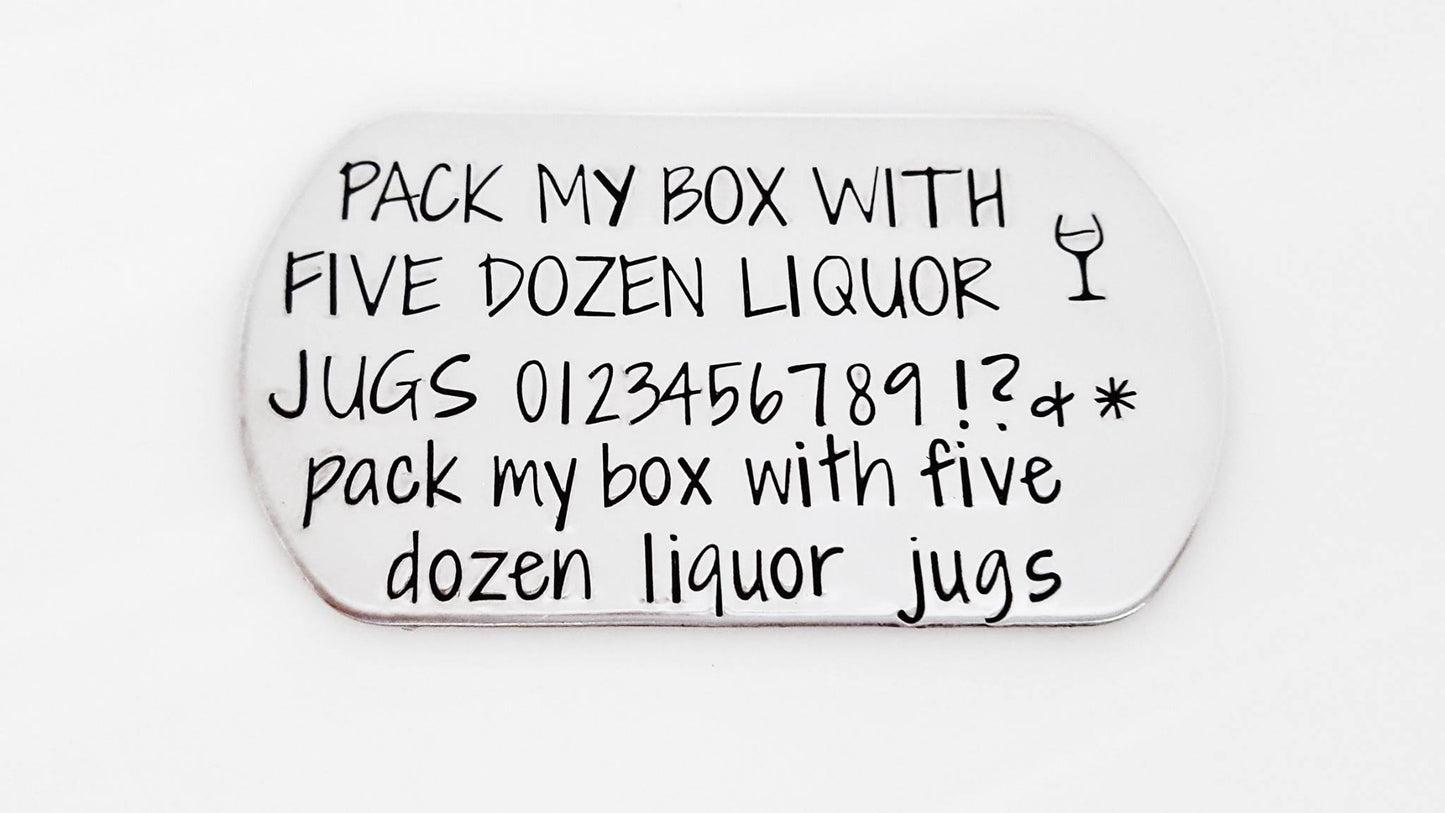 PACK MY BOX WITH
FIVE DOZEN LIQUOR
JUGS 0123456789!?&*
pack my box with five
dozen liquor jugs